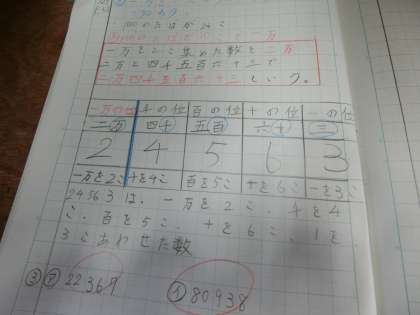 一万を2こ集めた数を二万
二万と四千五百六十三で
二万四千五百六十三という。
一万の位 千の位 百の位 十の位 一の位
二万 四千 五百 六十 三
2 4 5 6 3
一万を2こ 千を4こ 百を5こ 十を6こ 一を3こ
24563は、一万を2こ、千を4
こ、百を5こ、十を6こ、1を
3こあわせた数
③㋐22367 ㋑80938